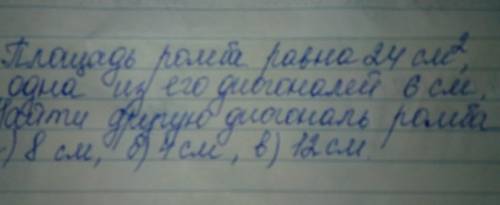 Площадь ромба равна 24 см²,
одна из его диогоналей 6 см.
Найти другую диогональ ромба
) 8 см, б) 4 см, в) 12 см.